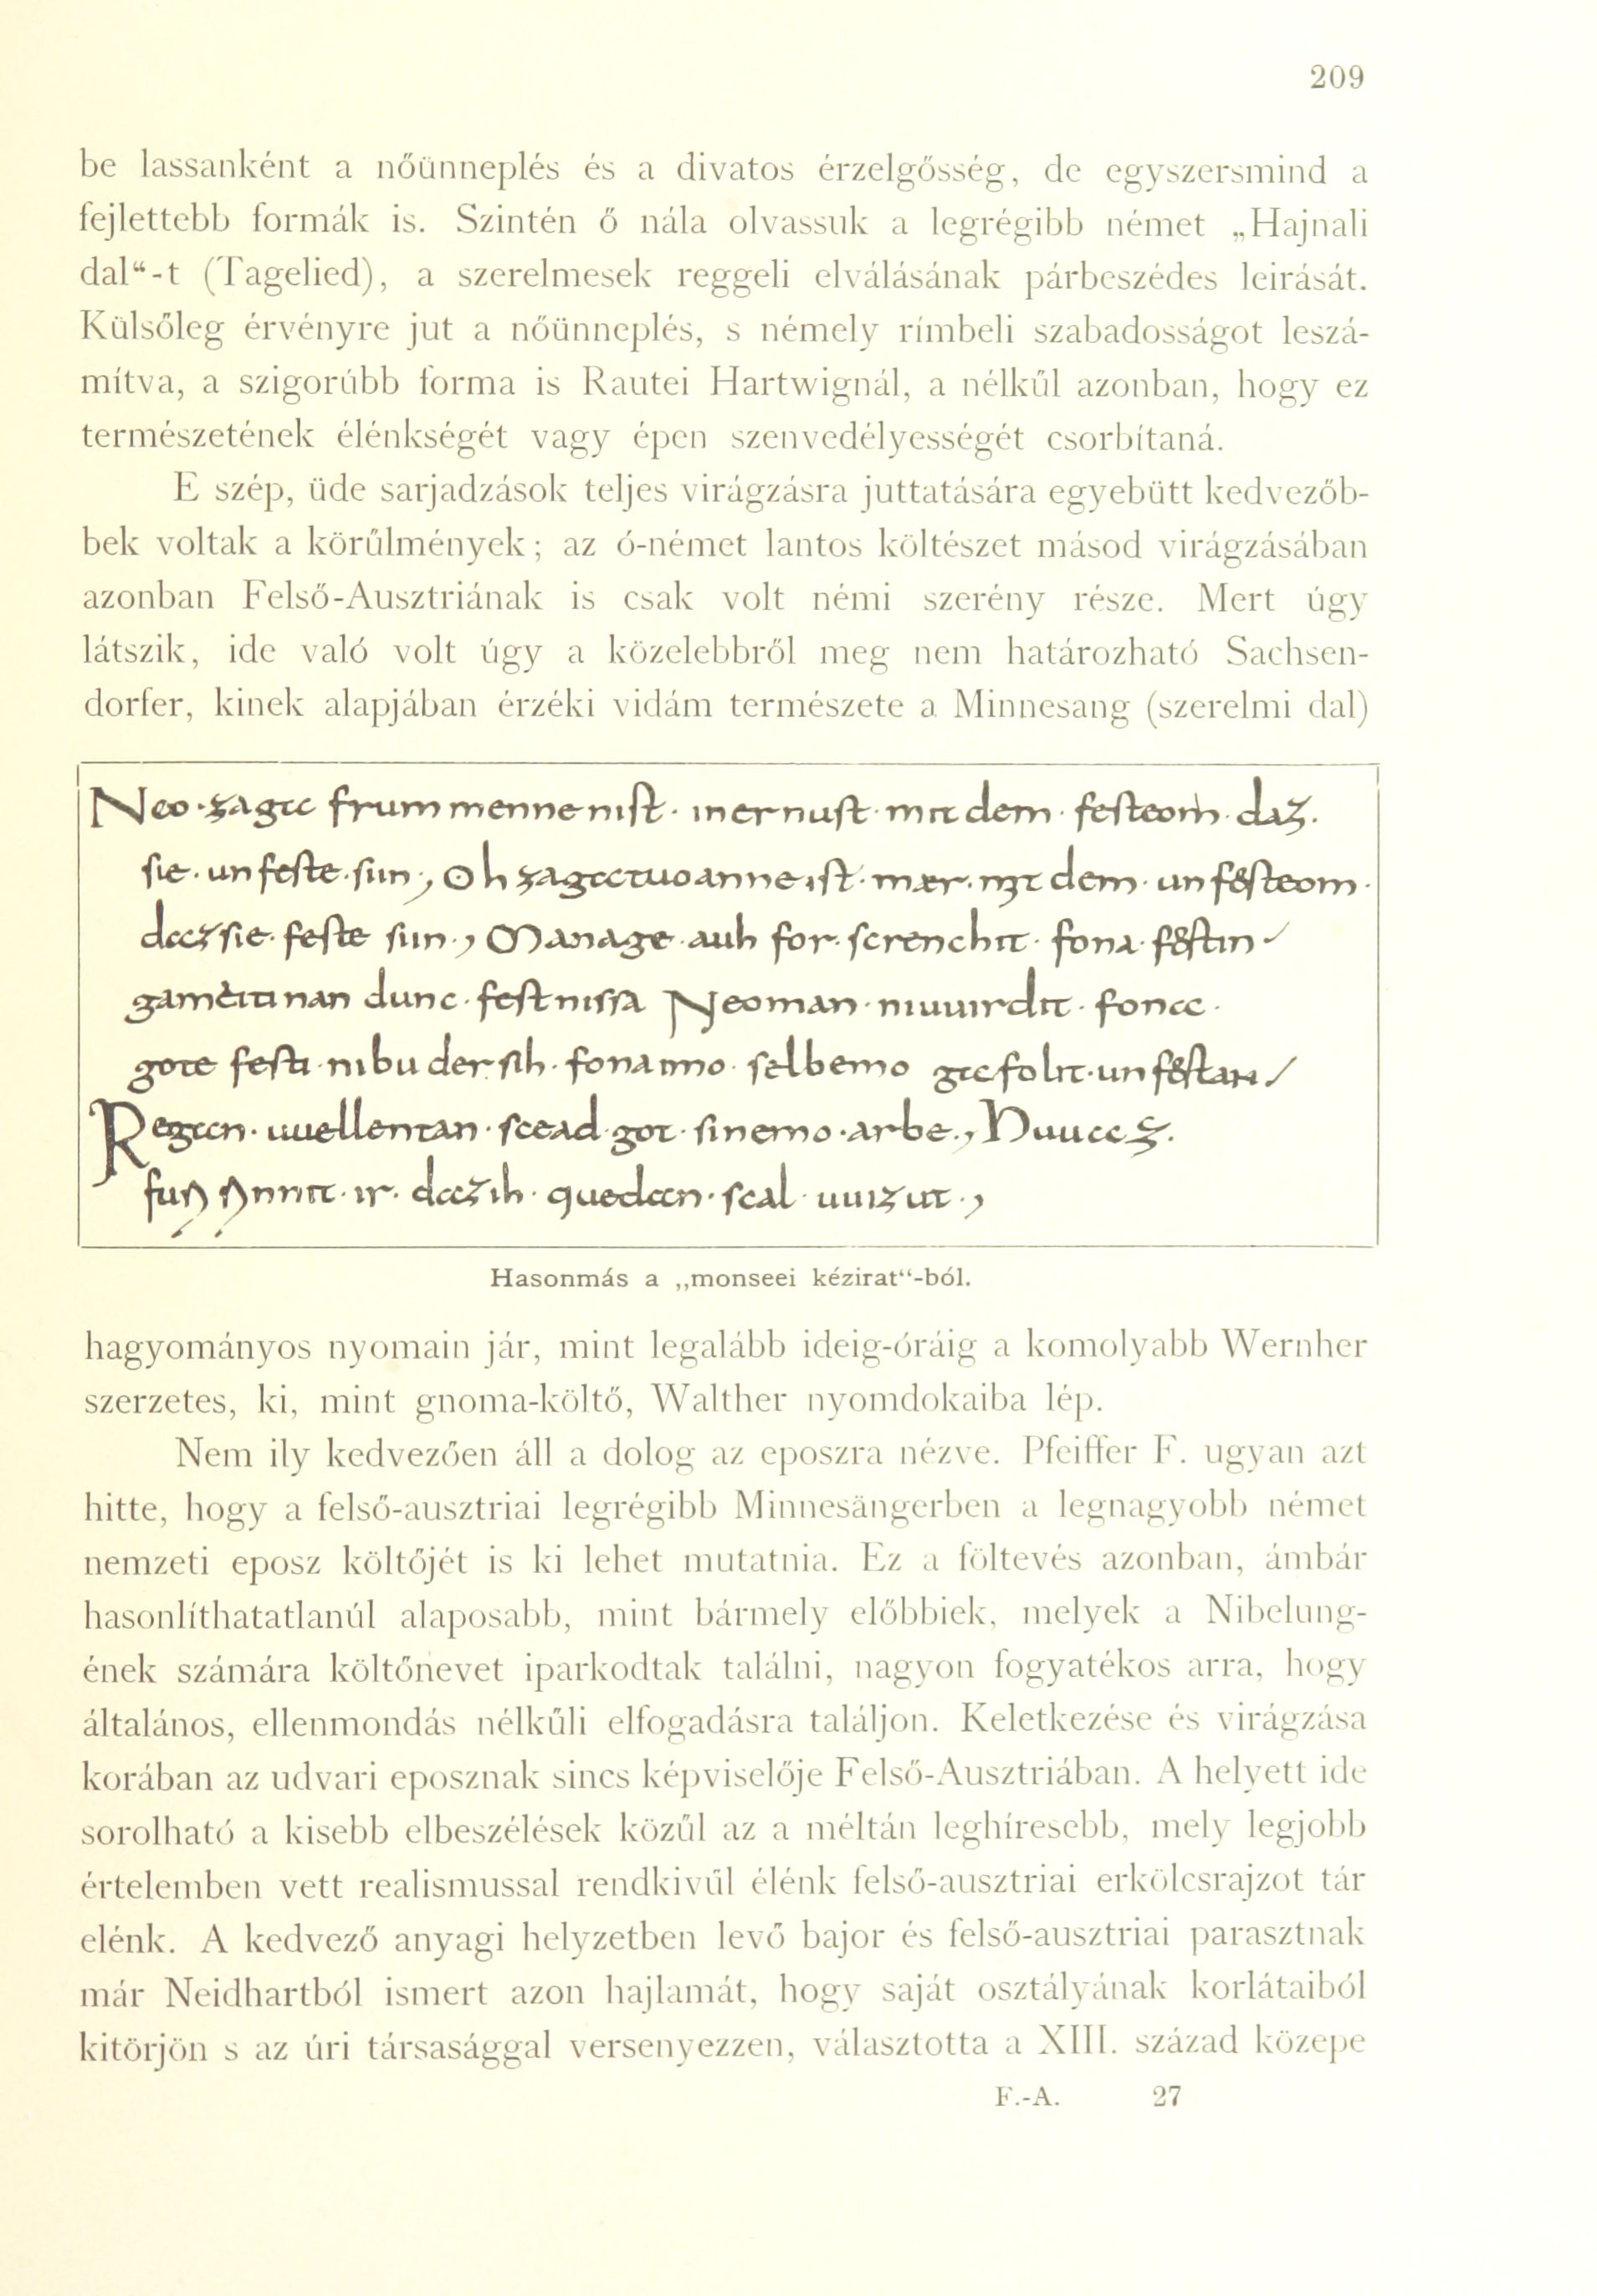 209
be lassanként a nőünneplés és a divatos érzelgősség, de egyszersmind a
fejlettebb formák is. Szintén ő nála olvassuk a legrégibb német „Hajnali
dal“-t (Tagelied), a szerelmesek reggeli elválásának párbeszédes leirását.
Külsőleg érvényre jut a nőünneplés, s némely rímbeli szabadosságot leszá-
mítva, a szigorúbb forma is Rautei Hartwignál, a nélkűl azonban, hogy ez
természetének élénkségét vagy épen szenvedélyességét csorbítaná.
E szép, üde sarjadzások teljes virágzásra juttatására egyebütt kedvezőb-
bek voltak a körűlmények; az ó-német lantos költészet másod virágzásában
azonban Felső-Ausztriának is csak volt némi szerény része. Mert úgy
látszik, ide való volt úgy a közelebbről meg nem határozható Sachsen-
dorfer, kinek alapjában érzéki vidám természete a Minnesang (szerelmi dal)
Neo·zaga frummenne nist· mer nust· mit dem· festeom· daz·
sie· un feste· sun·, Oh zaga manne ist· mær· mit dem· unfesteom·
daz sie· feste sun·, Manage· auh for· screnchit· fona· festin
dunc· festnissa Neoman· niuuirdit· fona·
gote festi· nibu der sih· fona imo· selbemo gafolit· unfestan
Regan· uuellentan· scead· got· sinemo· arbe·, Huuaz·
ir· daz ih· quedan· scal· uuizut·,
Hasonmás a „monseei kézirat“-ból.
hagyományos nyomain jár, mint legalább ideig-óráig a komolyabb Wernher
szerzetes, ki, mint gnoma-költő, Walther nyomdokaiba lép.
Nem ily kedvezően áll a dolog az eposzra nézve. Pfeiffer F. ugyan azt
hitte, hogy a felső-ausztriai legrégibb Minnesängerben a legnagyobb német
nemzeti eposz költőjét is ki lehet mutatnia. Ez a föltevés azonban, ámbár
hasonlíthatatlanúl alaposabb, mint bármely előbbiek, melyek a Nibelung-
ének számára költőnevet iparkodtak találni, nagyon fogyatékos arra, hogy
általános, ellenmondás nélkűli elfogadásra találjon. Keletkezése és virágzása
korában az udvari eposznak sincs képviselője Felső-Ausztriában. A helyett ide
sorolható a kisebb elbeszélések közűl az a méltán leghíresebb, mely legjobb
értelemben vett realismussal rendkivűl élénk felső-ausztriai erkölcsrajzot tár
elénk. A kedvező anyagi helyzetben levő bajor és felső-ausztriai parasztnak
már Neidhartból ismert azon hajlamát, hogy saját osztályának korlátaiból
kitörjön s az úri társasággal versenyezzen, választotta a XIII. század közepe
F.-A. 27